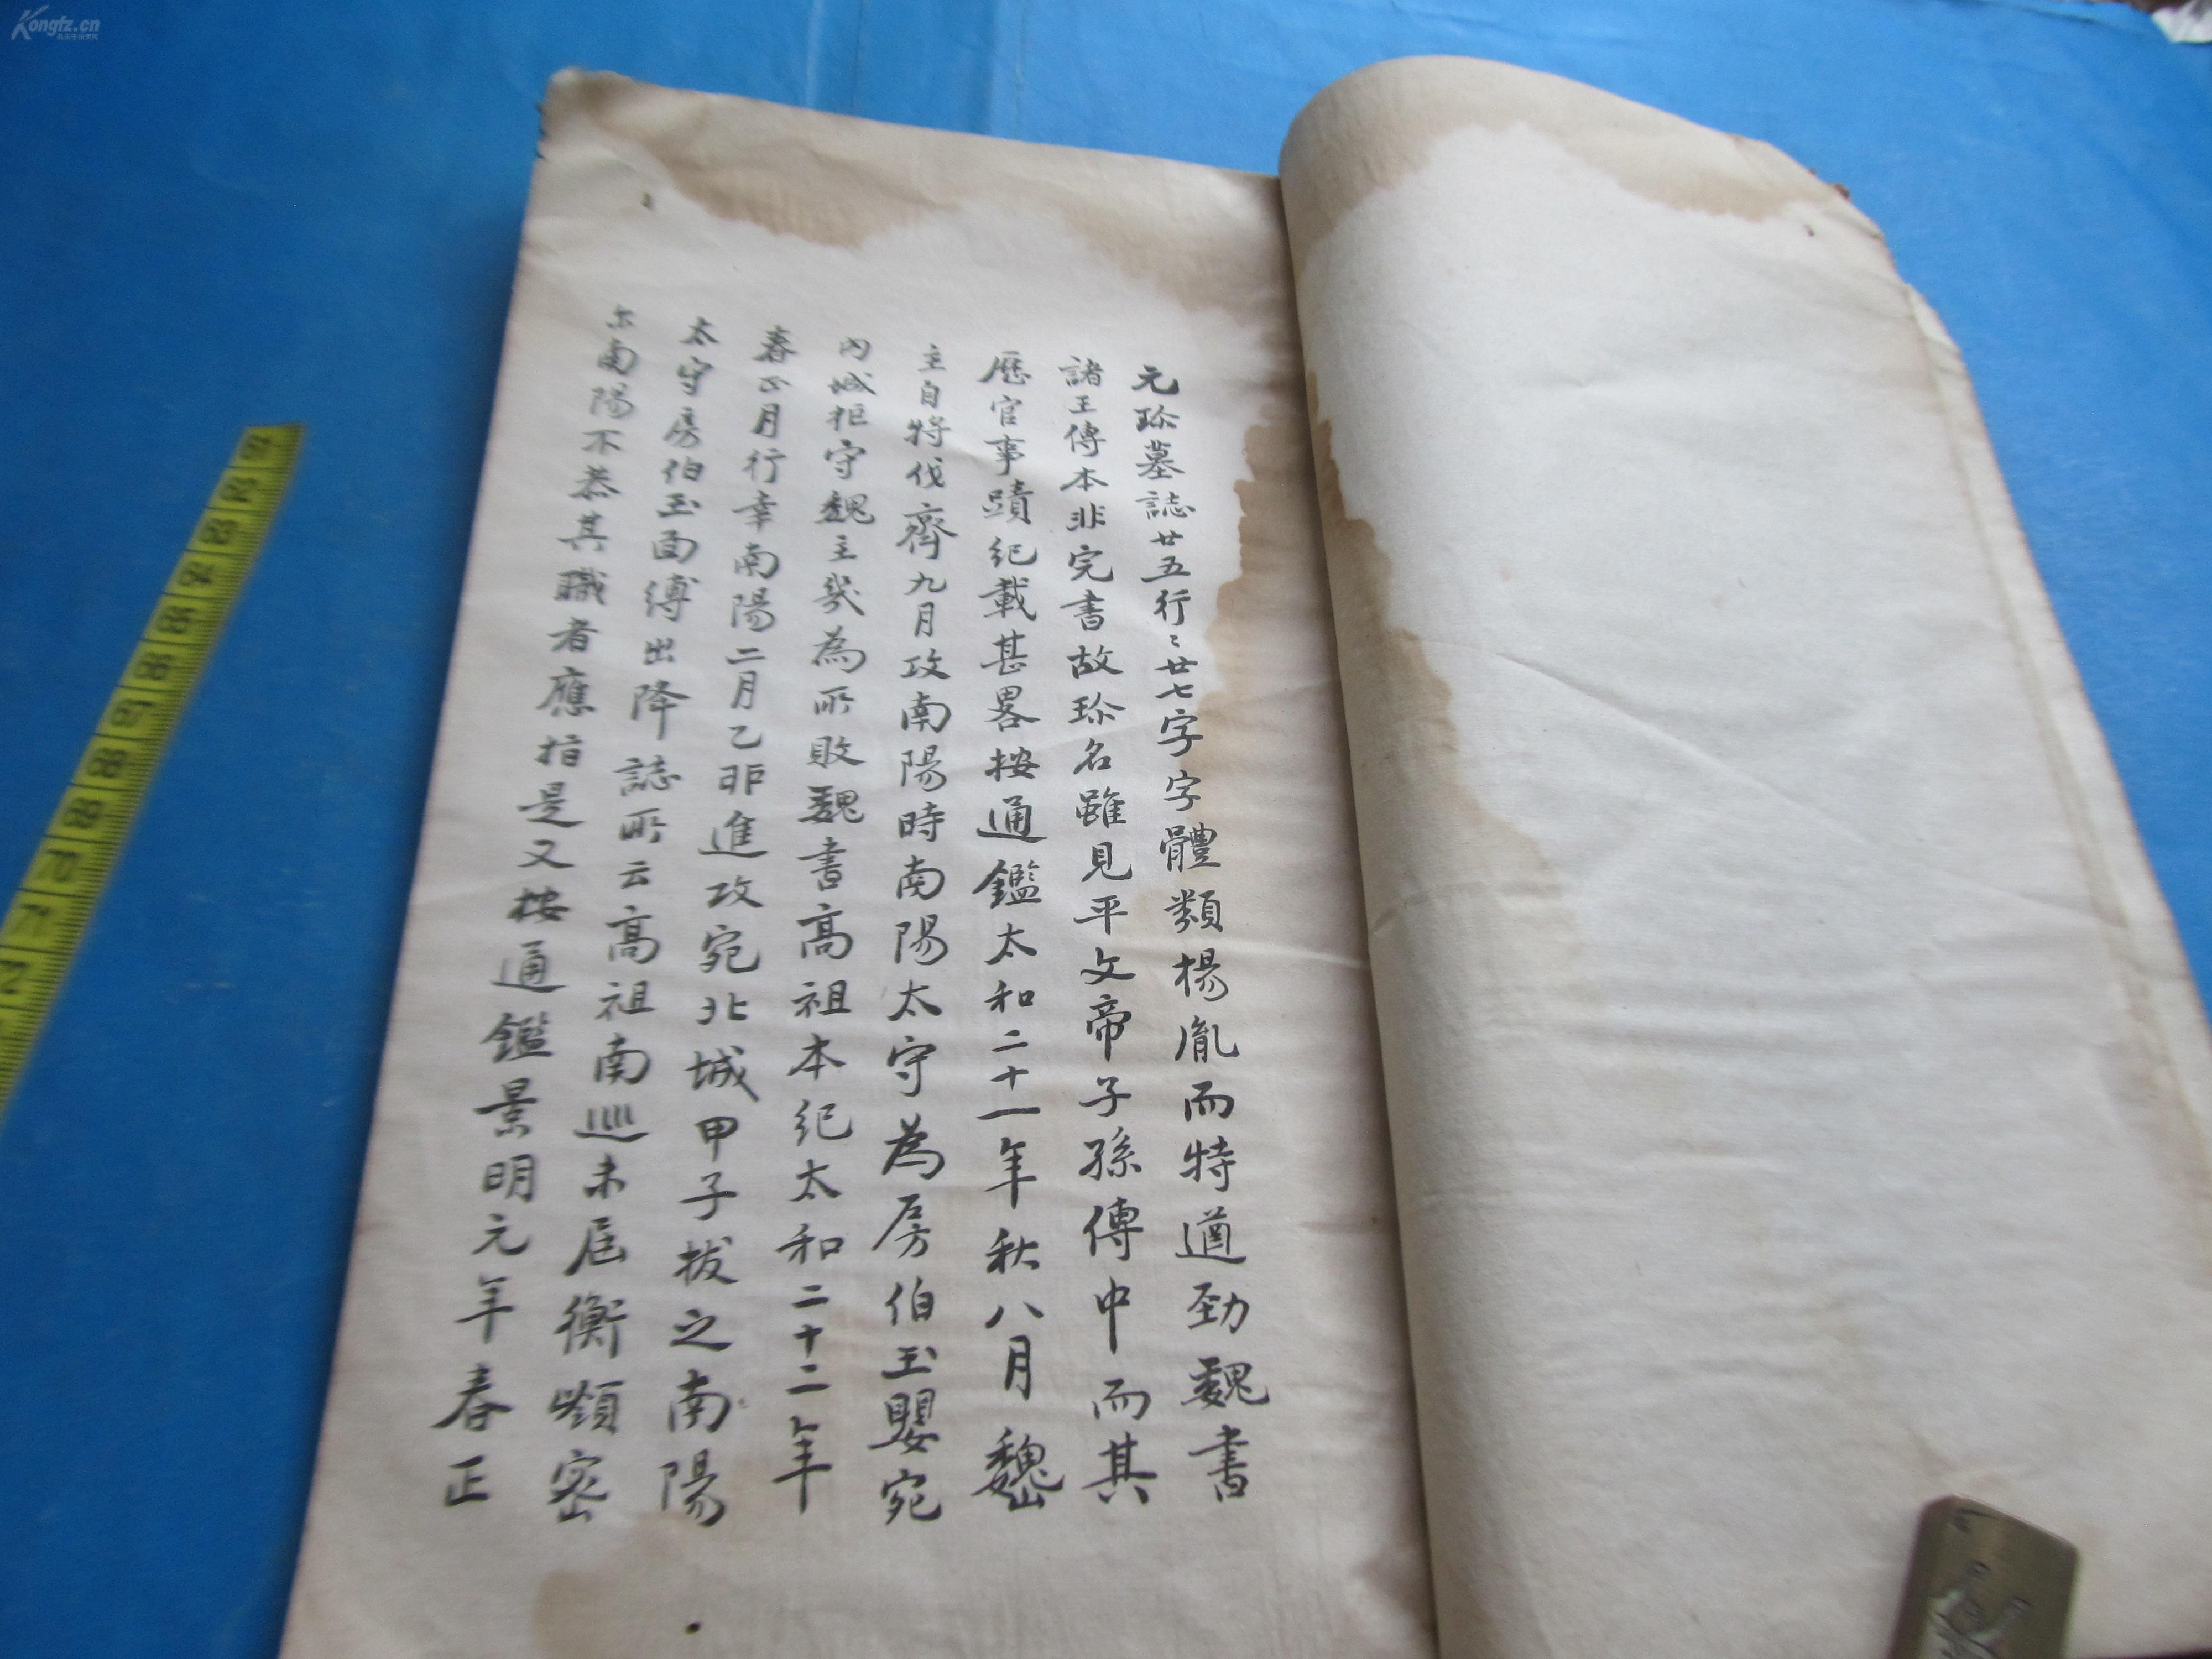 元珎墓誌廿五行〻廿七字字體類楊胤而特遒勁魏書
諸王傳本非完書故珎名雖見平文帝子孫傳中而其
歷官事蹟紀載甚畧按通鑑太和二十一年秋八月魏
主自将伐齊九月攻南陽時南陽太守為房伯玉嬰宛
內城拒守魏主幾為所敗魏書高祖本紀太和二十二年
春正月行幸南陽二月乙邜進攻宛北城甲子拔之南陽
太守房伯玉面縛出降誌所云高祖南巡未屆衡嶺密
尓南陽不恭其職者應指是又按通鑑景明元年春正
61
62
63
64
65
66
67
68
69
70
71
72
Kongfz.cn